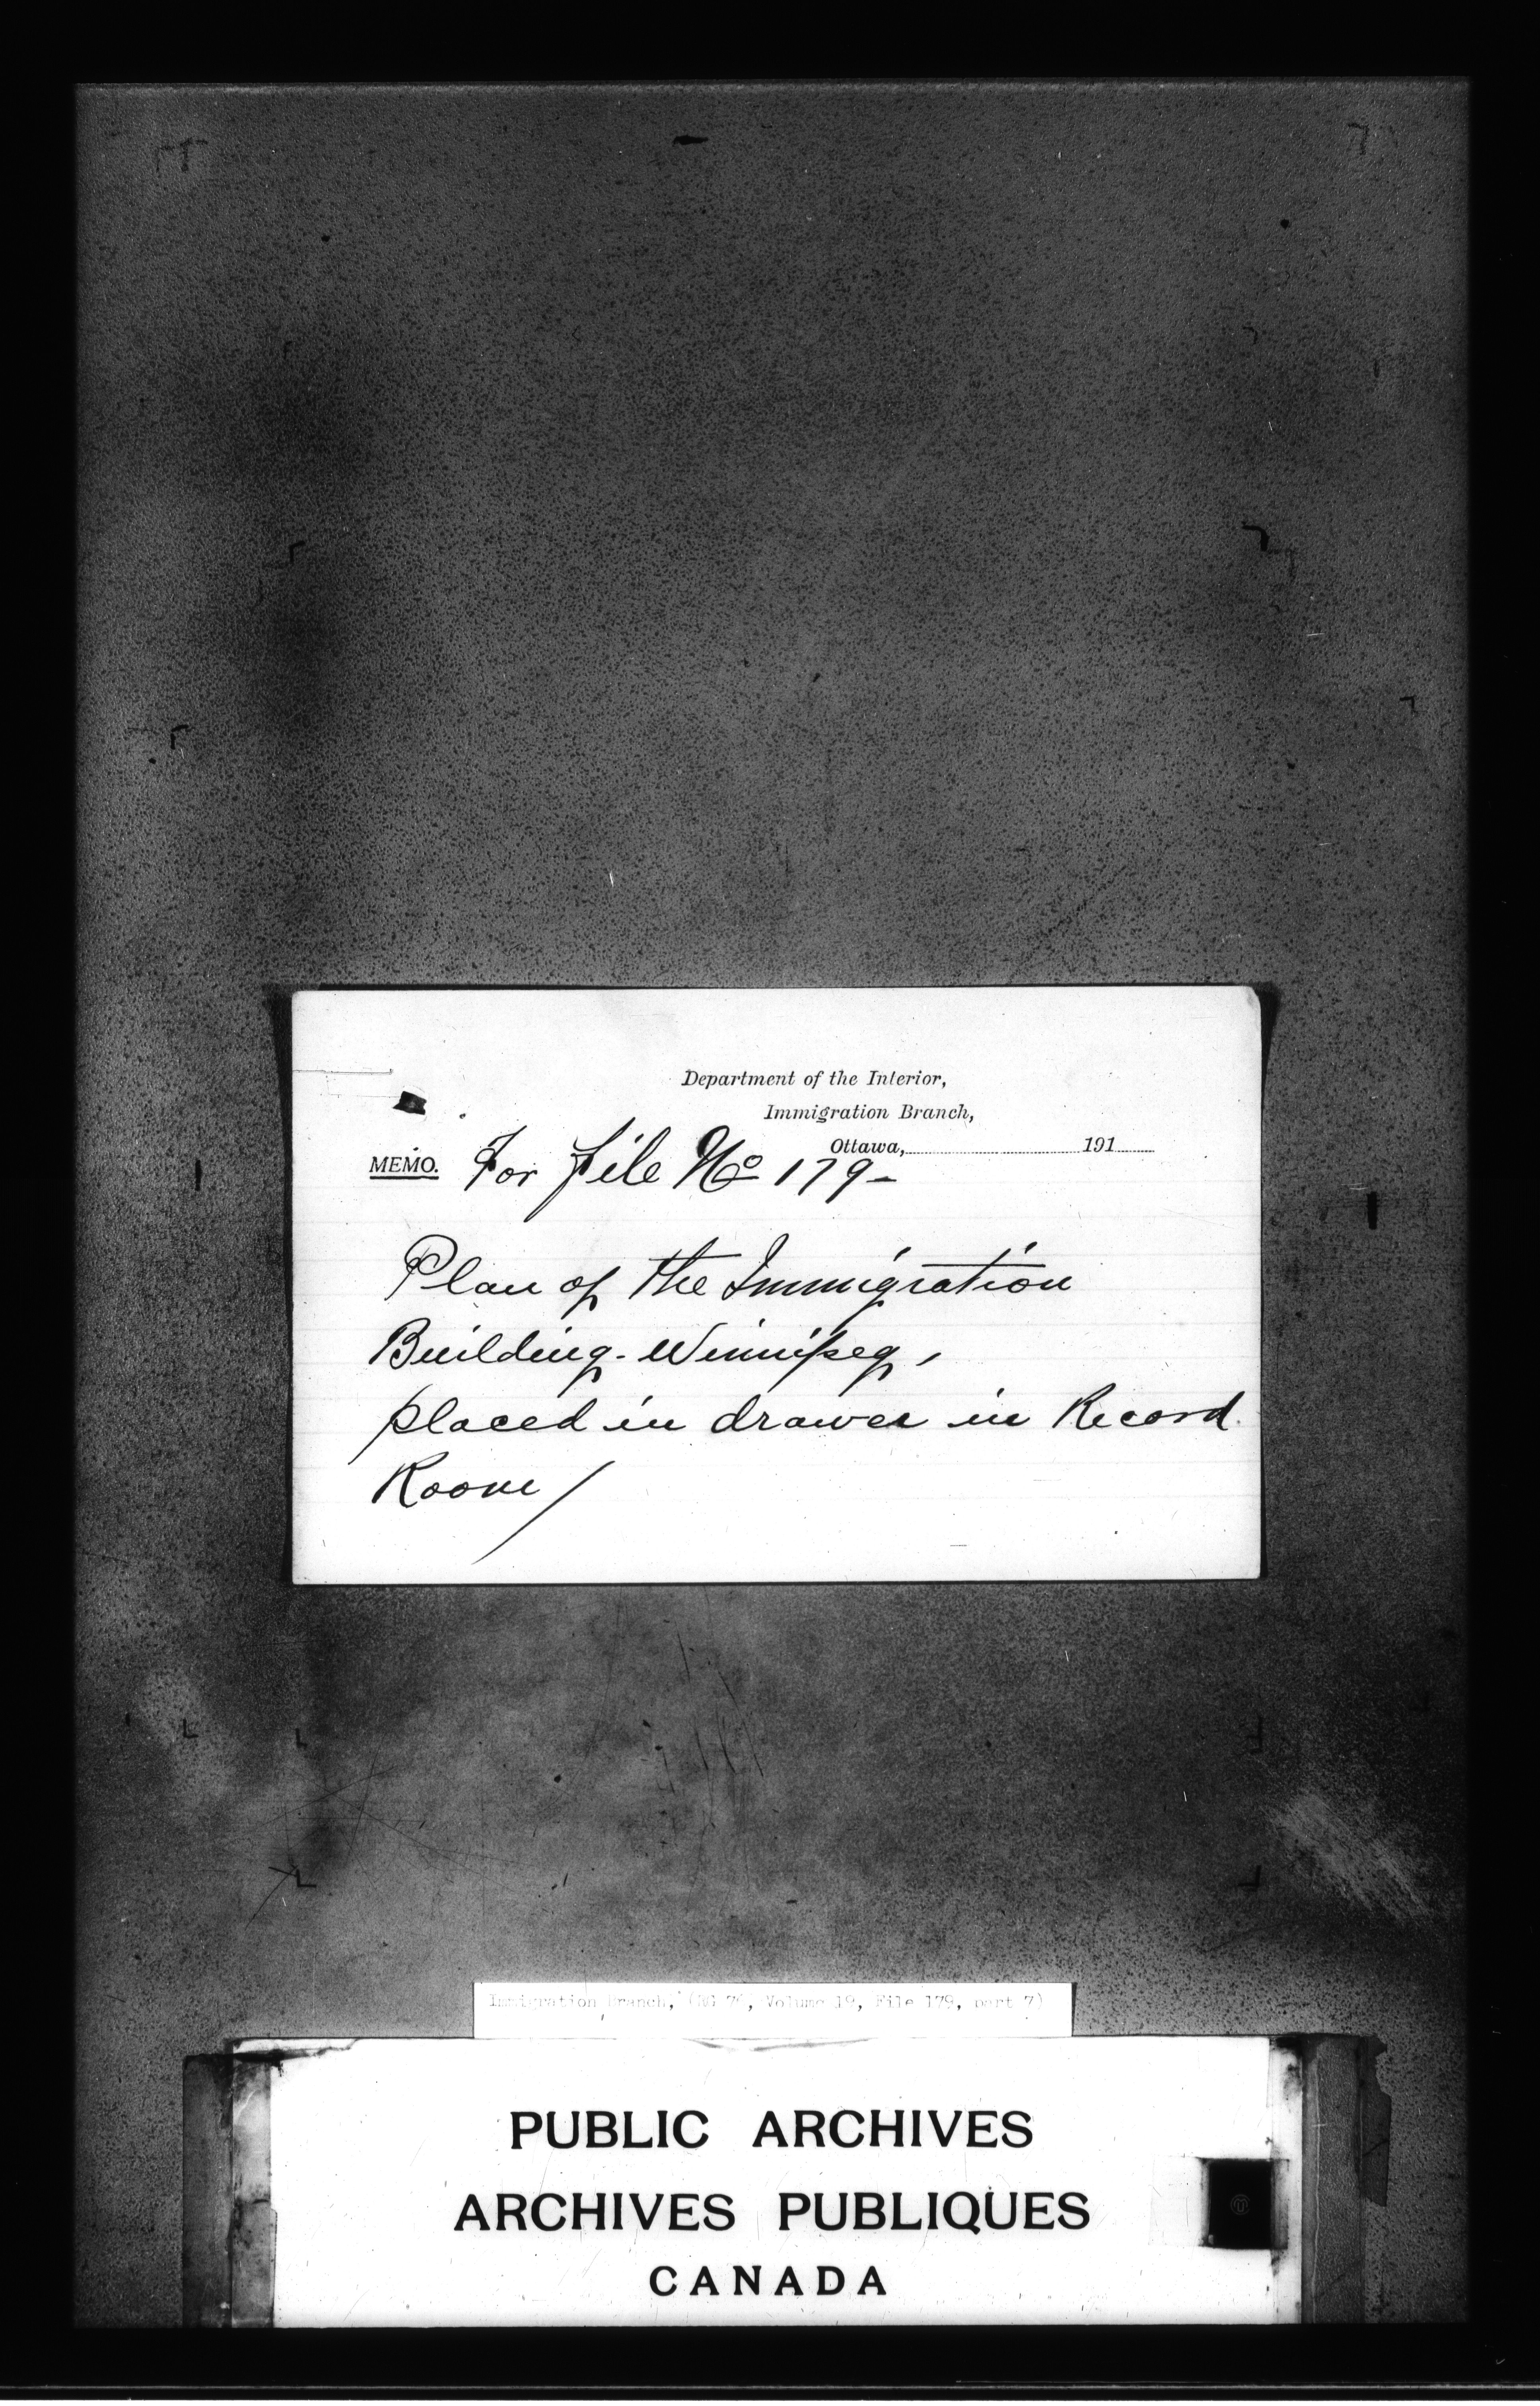 Department of the Interior,
Immigration Branch,
Ottawa, 191
MEMO. For file No 179-
Plan of the Immigration
Building - Winnipeg,
placed in drawer in Record
Room/
Immigration Branch, (RG 76, Volume 19, File 179, part 7)
PUBLIC ARCHIVES
ARCHIVES PUBLIQUES
CANADA